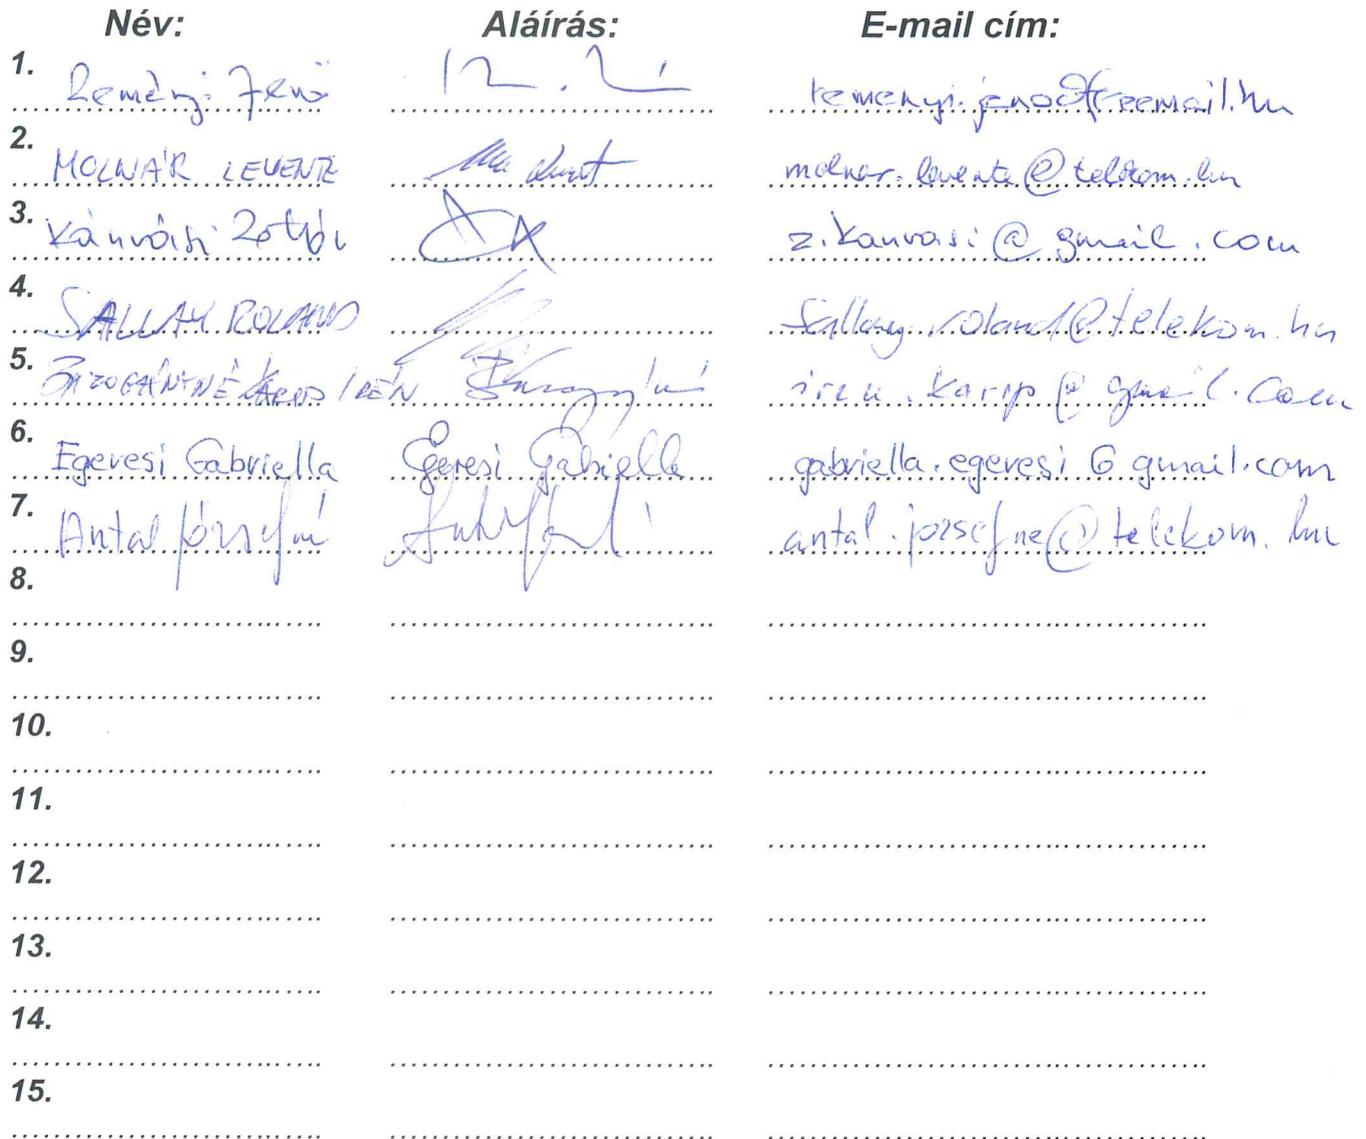 Név: Aláírás: E-mail cím:
1. Reményi Jenő remenyi.jeno@freemail.hu
2. MOLNÁR LEVENTE molnar.levente@telekom.hu
3. Kánvási Zoltán z.kanvasi@gmail.com
4. SALLAY ROLAND sallay.roland@telekom.hu
5. IRÉN @gmail.com
6. Egeresi Gabriella Egeresi Gabriella gabriella.egeresi@gmail.com
7. Antal Józsefné antal.jozsefne@telekom.hu
8.
9.
10.
11.
12.
13.
14.
15.